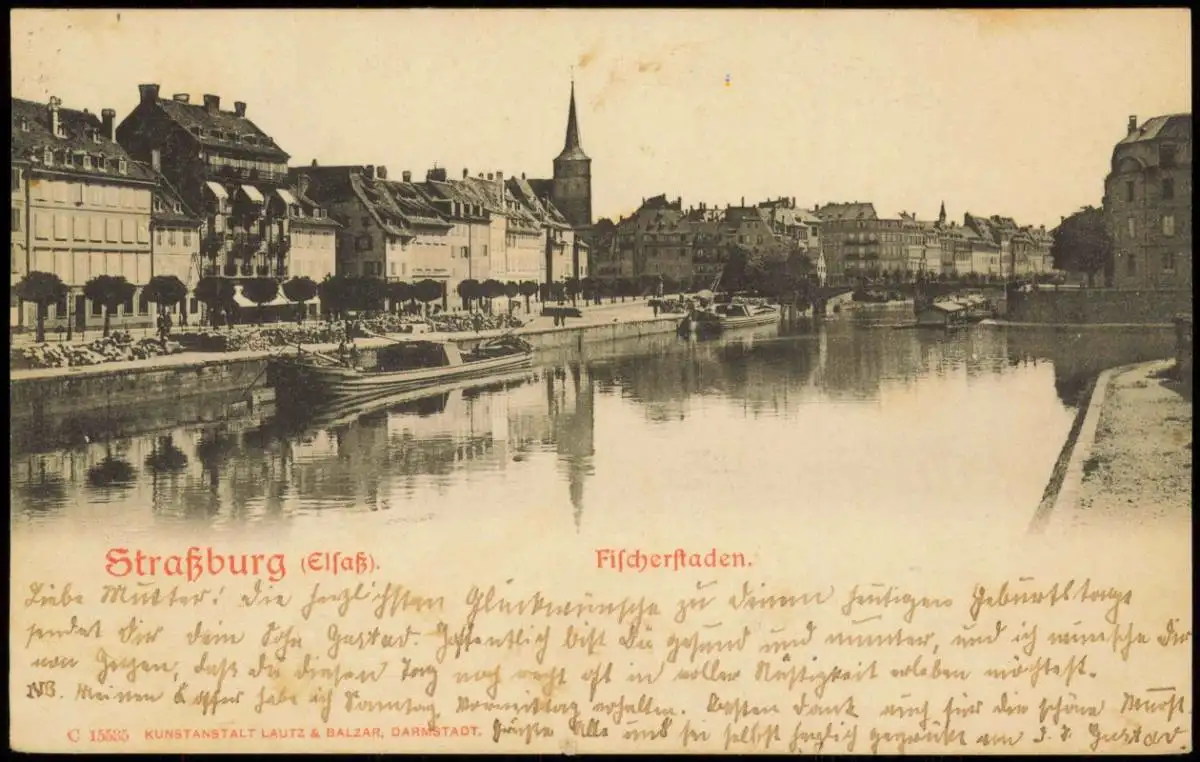 Straßburg (Elsaß).
Fischerstaden.
Liebe Mutter! Die herzlichsten Glückwünsche zu deinem heutigen Geburtstage
sendet dir dein Sohn Gustav. Hoffentlich bist du gesund und munter, und ich wünsche dir
von Herzen, daß du diesen Tag noch recht oft in voller Rüstigkeit erleben möchtest.
NB. Meinen Koffer habe ich Samstag Vormittag erhalten. Besten Dank auch für die schöne Wurst
C 15535 KUNSTANSTALT LAUTZ & BALZAR, DARMSTADT.
Grüße Alle und sei selbst herzlich gegrüßt von D. Gustav